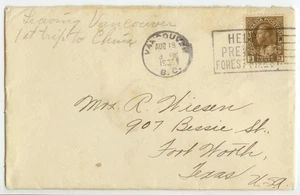 Leaving Vancouver
1st trip to China
VANCOUVER
AUG 18
B.C.
HELP
PREVENT
FOREST FIRES
Mrs. R. Wiesen
907 Bessie St.,
Fort Worth,
Texas
U.S.A.